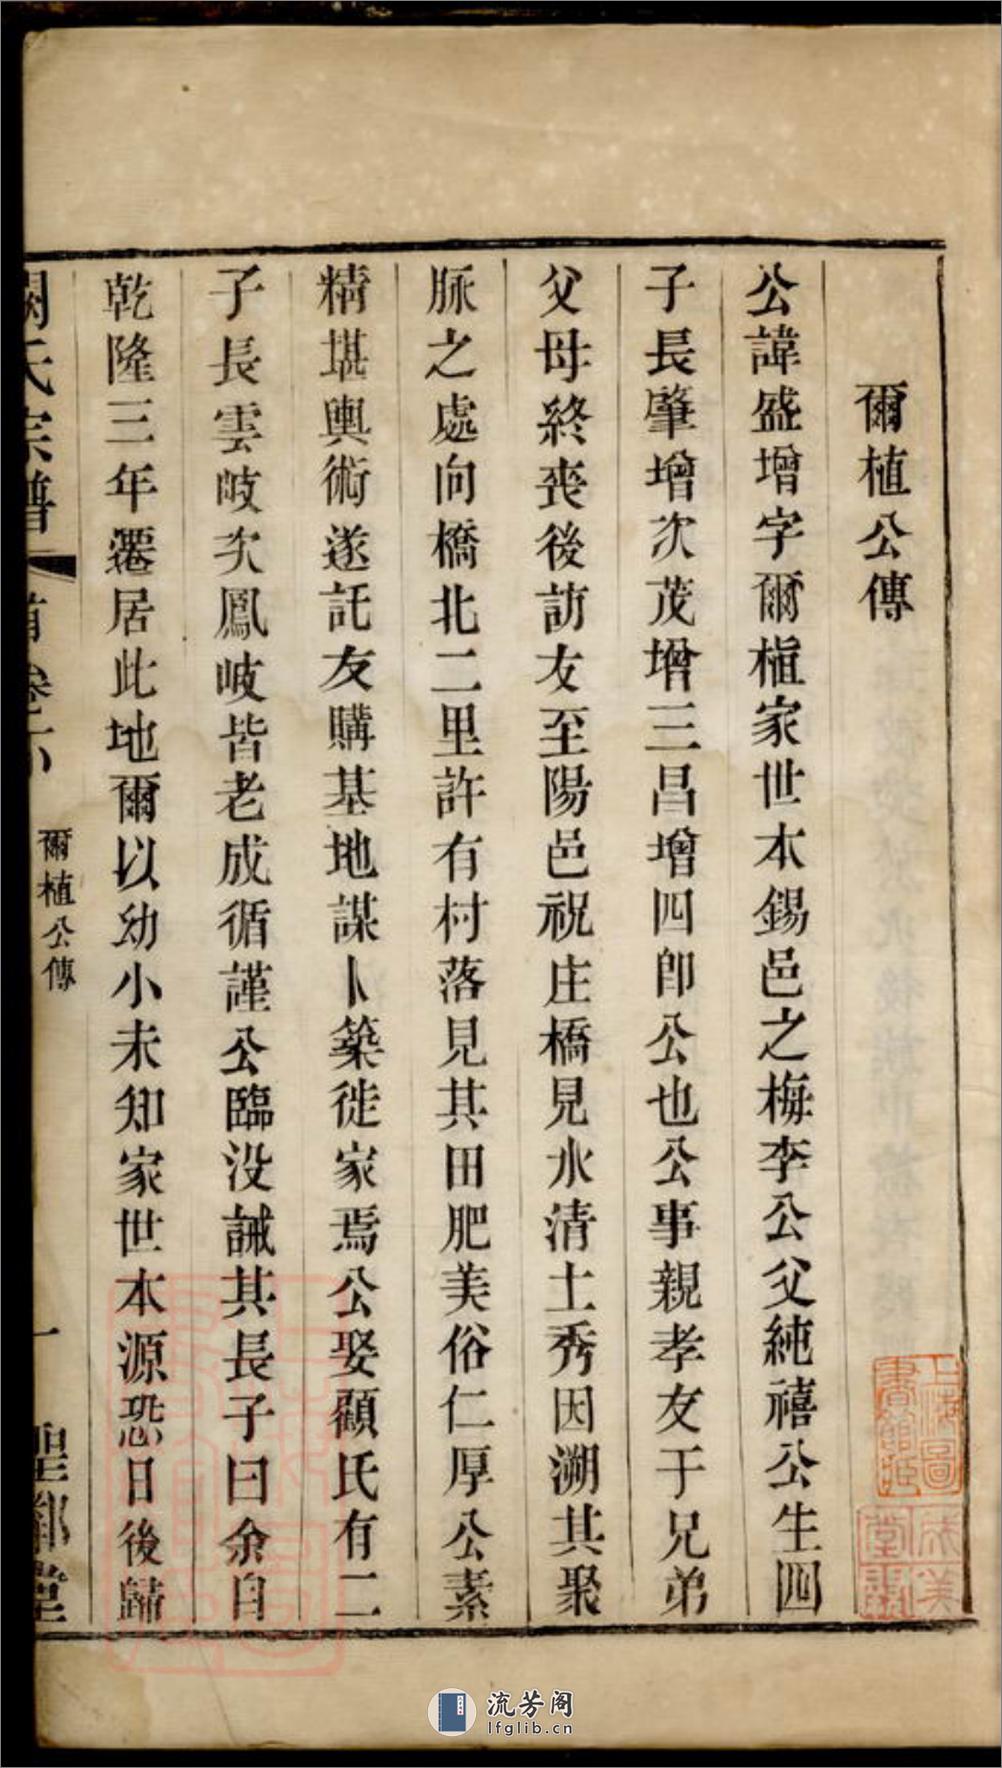 爾植公傳
公諱盛增字爾植家世本錫邑之梅李公父純禧公生四
子長肇增次茂增三昌增四卽公也公事親孝友于兄弟
父母終喪後訪友至陽邑祝庄橋見水清土秀因溯其聚
脉之處向橋北二里許有村落見其田肥美俗仁厚公素
精堪輿術遂託友購基地謀卜築徙家焉公娶顧氏有二
子長雲岐次鳳岐皆老成循謹公臨没誡其長子曰余自
乾隆三年遷居此地爾以幼小未知家世本源恐日後歸
氏宗譜 首卷上
爾植公傳
一
聖鄰堂
上海圖書館藏
流芳阁
lfglib.cn